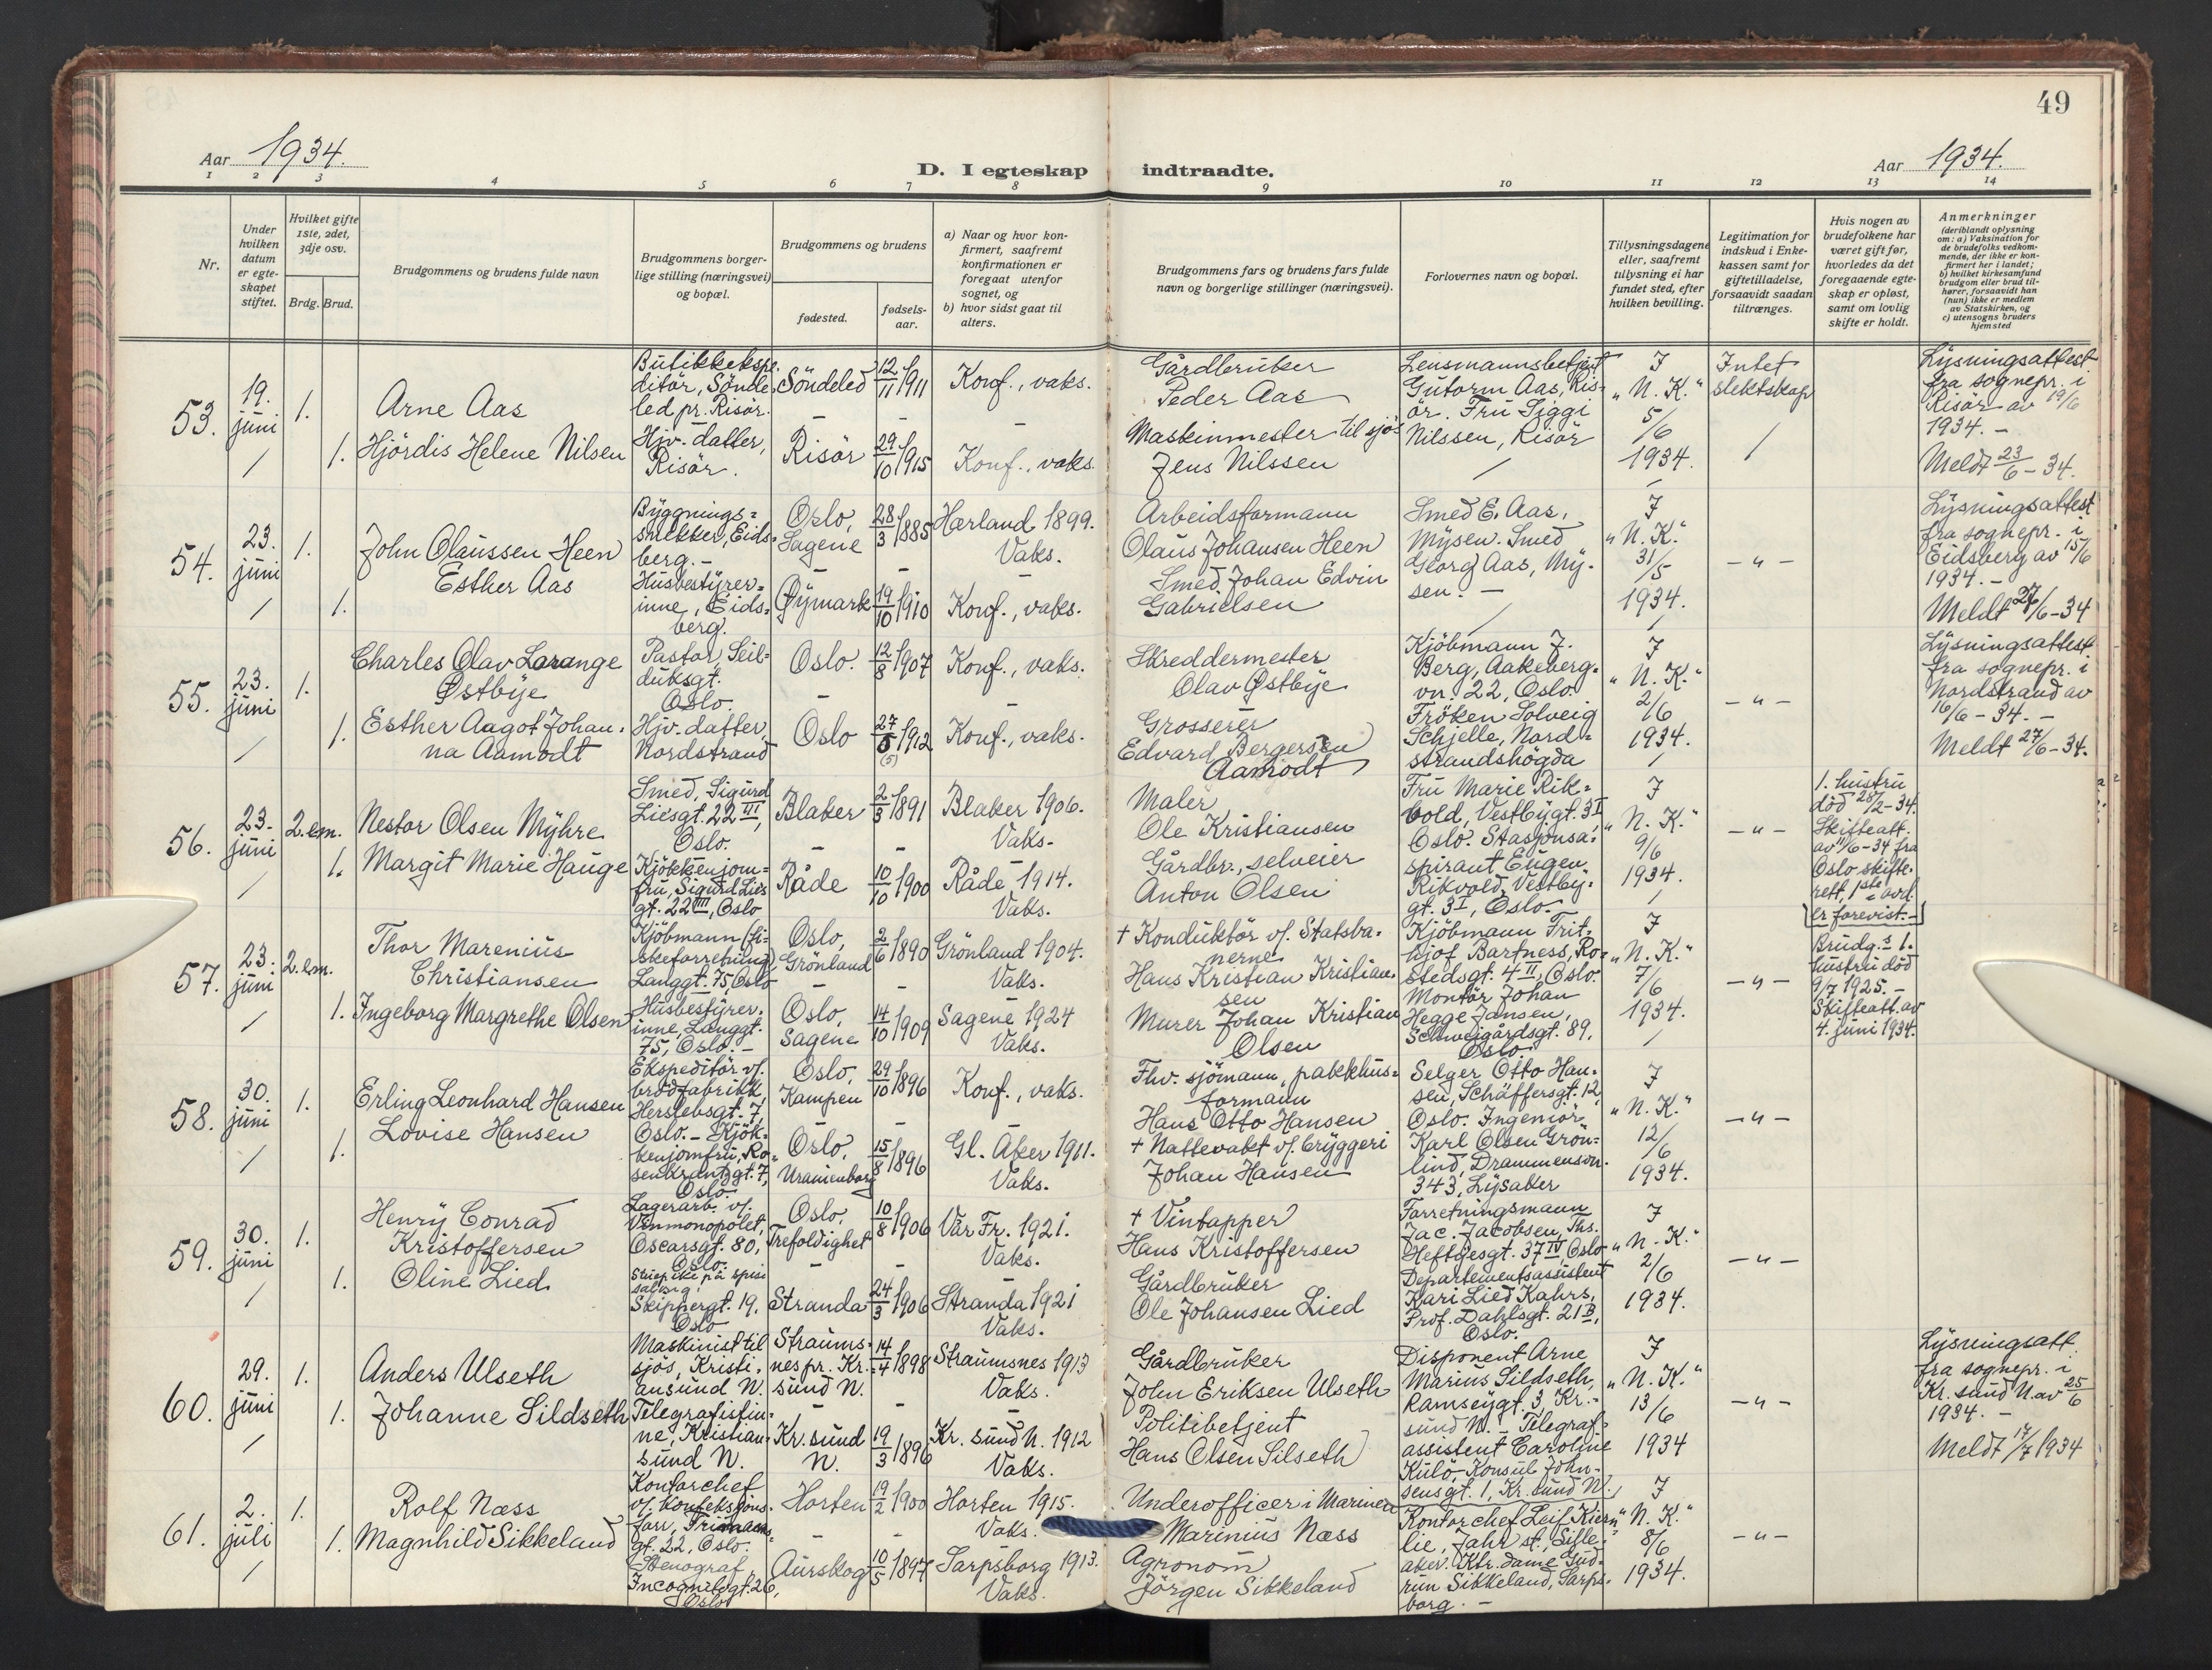 49
Aar 1934.
D. I egteskap indtraadte.
Aar 1934.
1 2 3 4 5 6 7 8 9 10 11 12 13 14
Nr.
Under hvilken datum er egteskapet stiftet.
Hvilket gifte 1ste, 2det, 3dje osv.
Brdg. Brud.
Brudgommens og brudens fulde navn
Brudgommens borgerlige stilling (næringsvei) og bopæl.
Brudgommens og brudens
fødested.
fødselsaar.
a) Naar og hvor konfirmert, saafremt konfirmationen er foregaat utenfor sognet, og
b) hvor sidst gaat til alters.
Brudgommens fars og brudens fars fulde navn og borgerlige stillinger (næringsvei).
Forlovernes navn og bopæl.
Tillysningsdagene eller, saafremt tillysning ei har fundet sted, efter hvilken bevilling.
Legitimation for indskud i Enkekassen samt for giftetilladelse, forsaavidt saadan tiltrænges.
Hvis nogen av brudefolkene har været gift før, hvorledes da det foregaaende egteskap er opløst, samt om lovlig skifte er holdt.
Anmerkninger
(deriblandt oplysning om: a) Vaksination for de brudefolks vedkommende, der ikke er konfirmert her i landet; b) hvilket kirkesamfund brudgom eller brud tilhører, forsaavidt han (hun) ikke er medlem av Statskirken, og c) utensogns bruders hjemsted
53.
19. juni
1.
Arne Aas
Butikkekspeditör, Söndeled pr. Risör.
Söndeled
12/11 1911
Konf., vaks.
Gårdbruker
Peder Aas
Lensmannsbetjent Gutorm Aas, Risör. Fru Siggi Nilssen, Risör
I "N. K." 5/6 1934.
Intet slektskap
Lysningsattest fra sognepr. i Risör av 19/6 1934. -
Meldt 23/6-34.
1.
Hjördis Helene Nilsen
Hjv. datter, Risör.
Risör
29/10 1915
Konf., vaks.
Maskinmester til sjös
Jens Nilssen
54.
23. juni
1.
John Olaussen Heen
Bygningssnekker, Eidsberg. -
Oslo, Sagene
28/3 1885
Hærland 1899.
Vaks.
Arbeidsformann
Olaus Johansen Heen
Smed E. Aas, Mysen. Smed Georg Aas, Mysen. -
I "N. K." 31/5 1934.
- " -
Lysningsattest fra sognepr. i Eidsberg av 15/6 1934. -
Meldt 27/6-34
1.
Esther Aas
Husbestyrerinne, Eidsberg.
Øymark
19/10 1910
Konf., vaks.
Smed Johan Edvin Gabrielsen
55.
23. juni
1.
Charles Olav Lorange Østbye
Pastor, Seilduksgt. Oslo.
Oslo.
12/8 1907
Konf., vaks.
Skreddermester
Olav Østbye
Kjöbmann J. Berg, Aakebergvn. 22, Oslo. Fröken Solveig Schjelle, Nordstrandshögda
I "N. K." 2/6 1934.
- " -
Lysningsattest fra sognepr. i Nordstrand av 16/6-34. -
Meldt 27/6-34.
1.
Esther Aagot Johanna Aamodt
Hjv. datter, Nordstrand
Oslo
27/5 1912
(5)
Konf., vaks.
Grosserer
Edvard Bergersen Aamodt
56.
23. juni
2. em.
Nestor Olsen Myhre
Smed, Sigurd Liesgt. 22 III, Oslo.
Blaker
2/3 1891
Blaker 1906.
Vaks.
Maler
Ole Kristiansen
Fru Marie Rikvold, Vestbygt. 3 I, Oslo. Stasjonsaspirant Eugen Rikvold, Vestbygt. 3 I, Oslo.
I "N. K." 9/6 1934.
- " -
1. hustru död 28/2-34. Skifteatt. av 11/6-34 fra Oslo skifterett, 1ste avd. er forevist. -
1.
Margit Marie Hauge
Kjökkenjomfru, Sigurd Liesgt. 22 III, Oslo
Råde
10/10 1900
Råde 1914.
Vaks.
Gårdbr., selveier
Anton Olsen
57.
23. juni
2. em.
Thor Marenius Christiansen
Kjöbmann (fiskeforretning) Langgt. 75, Oslo
Oslo, Grönland
2/6 1890
Grönland 1904.
Vaks.
+ Konduktör v/. Statsbanerne
Hans Kristian Kristiansen
Kjöbmann Fritkjof Bartness, Rostedsgt. 4 II, Oslo. Montör Johan Hegge Jansen, Schweigårdsgt. 89, Oslo.
I "N. K." 7/6 1934.
- " -
Brudg.s 1. hustru död 9/7 1925. - Skifteatt. av 4. juni 1934.
1.
Ingeborg Margrethe Olsen
Husbestyrerinne, Langgt. 75, Oslo. -
Oslo, Sagene
14/10 1909
Sagene 1924
Vaks.
Murer Johan Kristian Olsen
58.
30. juni
1.
Erling Leonhard Hansen
Ekspeditör v/. brödfabrikk, Herslebsgt. 7, Oslo. -
Oslo, Kampen
29/10 1896
Konf., vaks.
Fhv. sjömann, pakkhusformann
Hans Otto Hansen
Selger Otto Hansen, Schäffersgt. 12, Oslo. Ingeniör Karl Olsen Grönlind, Drammensvn. 343, Lysaker
I "N. K." 12/6 1934.
- " -
1.
Lovise Hansen
Kjökkenjomfru, Rosenkrantzgt. 7, Oslo.
Oslo, Uranienborg
15/8 1896
Gl. Aker 1911.
Vaks.
+ Nattevakt v/. bryggeri
Johan Hansen
59.
30. juni
1.
Henry Conrad Kristoffersen
Lagerarb. v/. Vinmonopolet, Oscarsgt. 80, Oslo.
Oslo, Trefoldighet
10/8 1906
Vår Fr. 1921.
Vaks.
+ Vintapper
Hans Kristoffersen
Forretningsmann Jac. Jacobsen, Ths. Heftyesgt. 37 IV Oslo. Departementsassistent Kari Lied Kahrs, Prof. Dahlsgt. 21 B, Oslo.
I "N. K." 2/6 1934.
- " -
1.
Oline Lied
Stuepike på Skippergt. 19, Oslo
Stranda
24/3 1906
Stranda 1921
Vaks.
Gårdbruker
Ole Johansen Lied
60.
29. juni
1.
Anders Ulseth
Maskinist til sjös, Kristiansund N.
Straumsnes pr. Kr.sund N.
14/4 1898
Straumsnes 1913
Vaks.
Gårdbruker
John Eriksen Ulseth
Disponent Arne Marius Sildseth, Ramsøygt. 3, Kr.sund N. - Telegrafassistent Caroline Kulö, Konsul Johnsensgt. 1, Kr. sund N.
I "N. K." 13/6 1934
- " -
Lysningsatt. fra sognepr. i Kr. sund N. av 25/6 1934. -
Meldt 17/7 1934
1.
Johanne Sildseth
Telegrafistinne, Kristiansund N.
Kr. sund N.
19/3 1896
Kr. sund N. 1912
Vaks.
Politibetjent
Hans Olsen Silseth
61.
2. juli
1.
Rolf Næss
Kontorchef v/. konfeksjonsforr, gt. 22, Oslo.
Horten
19/2 1900
Horten 1915.
Vaks.
Underofficer i Marinen
Marinius Næss
Kontorchef Leif Kiernlie, Jahr st., Sille-aker. Ktr. dame Gudrun Sikkeland, Sarpsborg. -
I "N. K." 8/6 1934.
- " -
1.
Magnhild Sikkeland
Stenograf Incognitogt. 26, Oslo
Aurskog
10/5 1897
Sarpsborg 1913.
Vaks.
Agronom
Jörgen Sikkeland